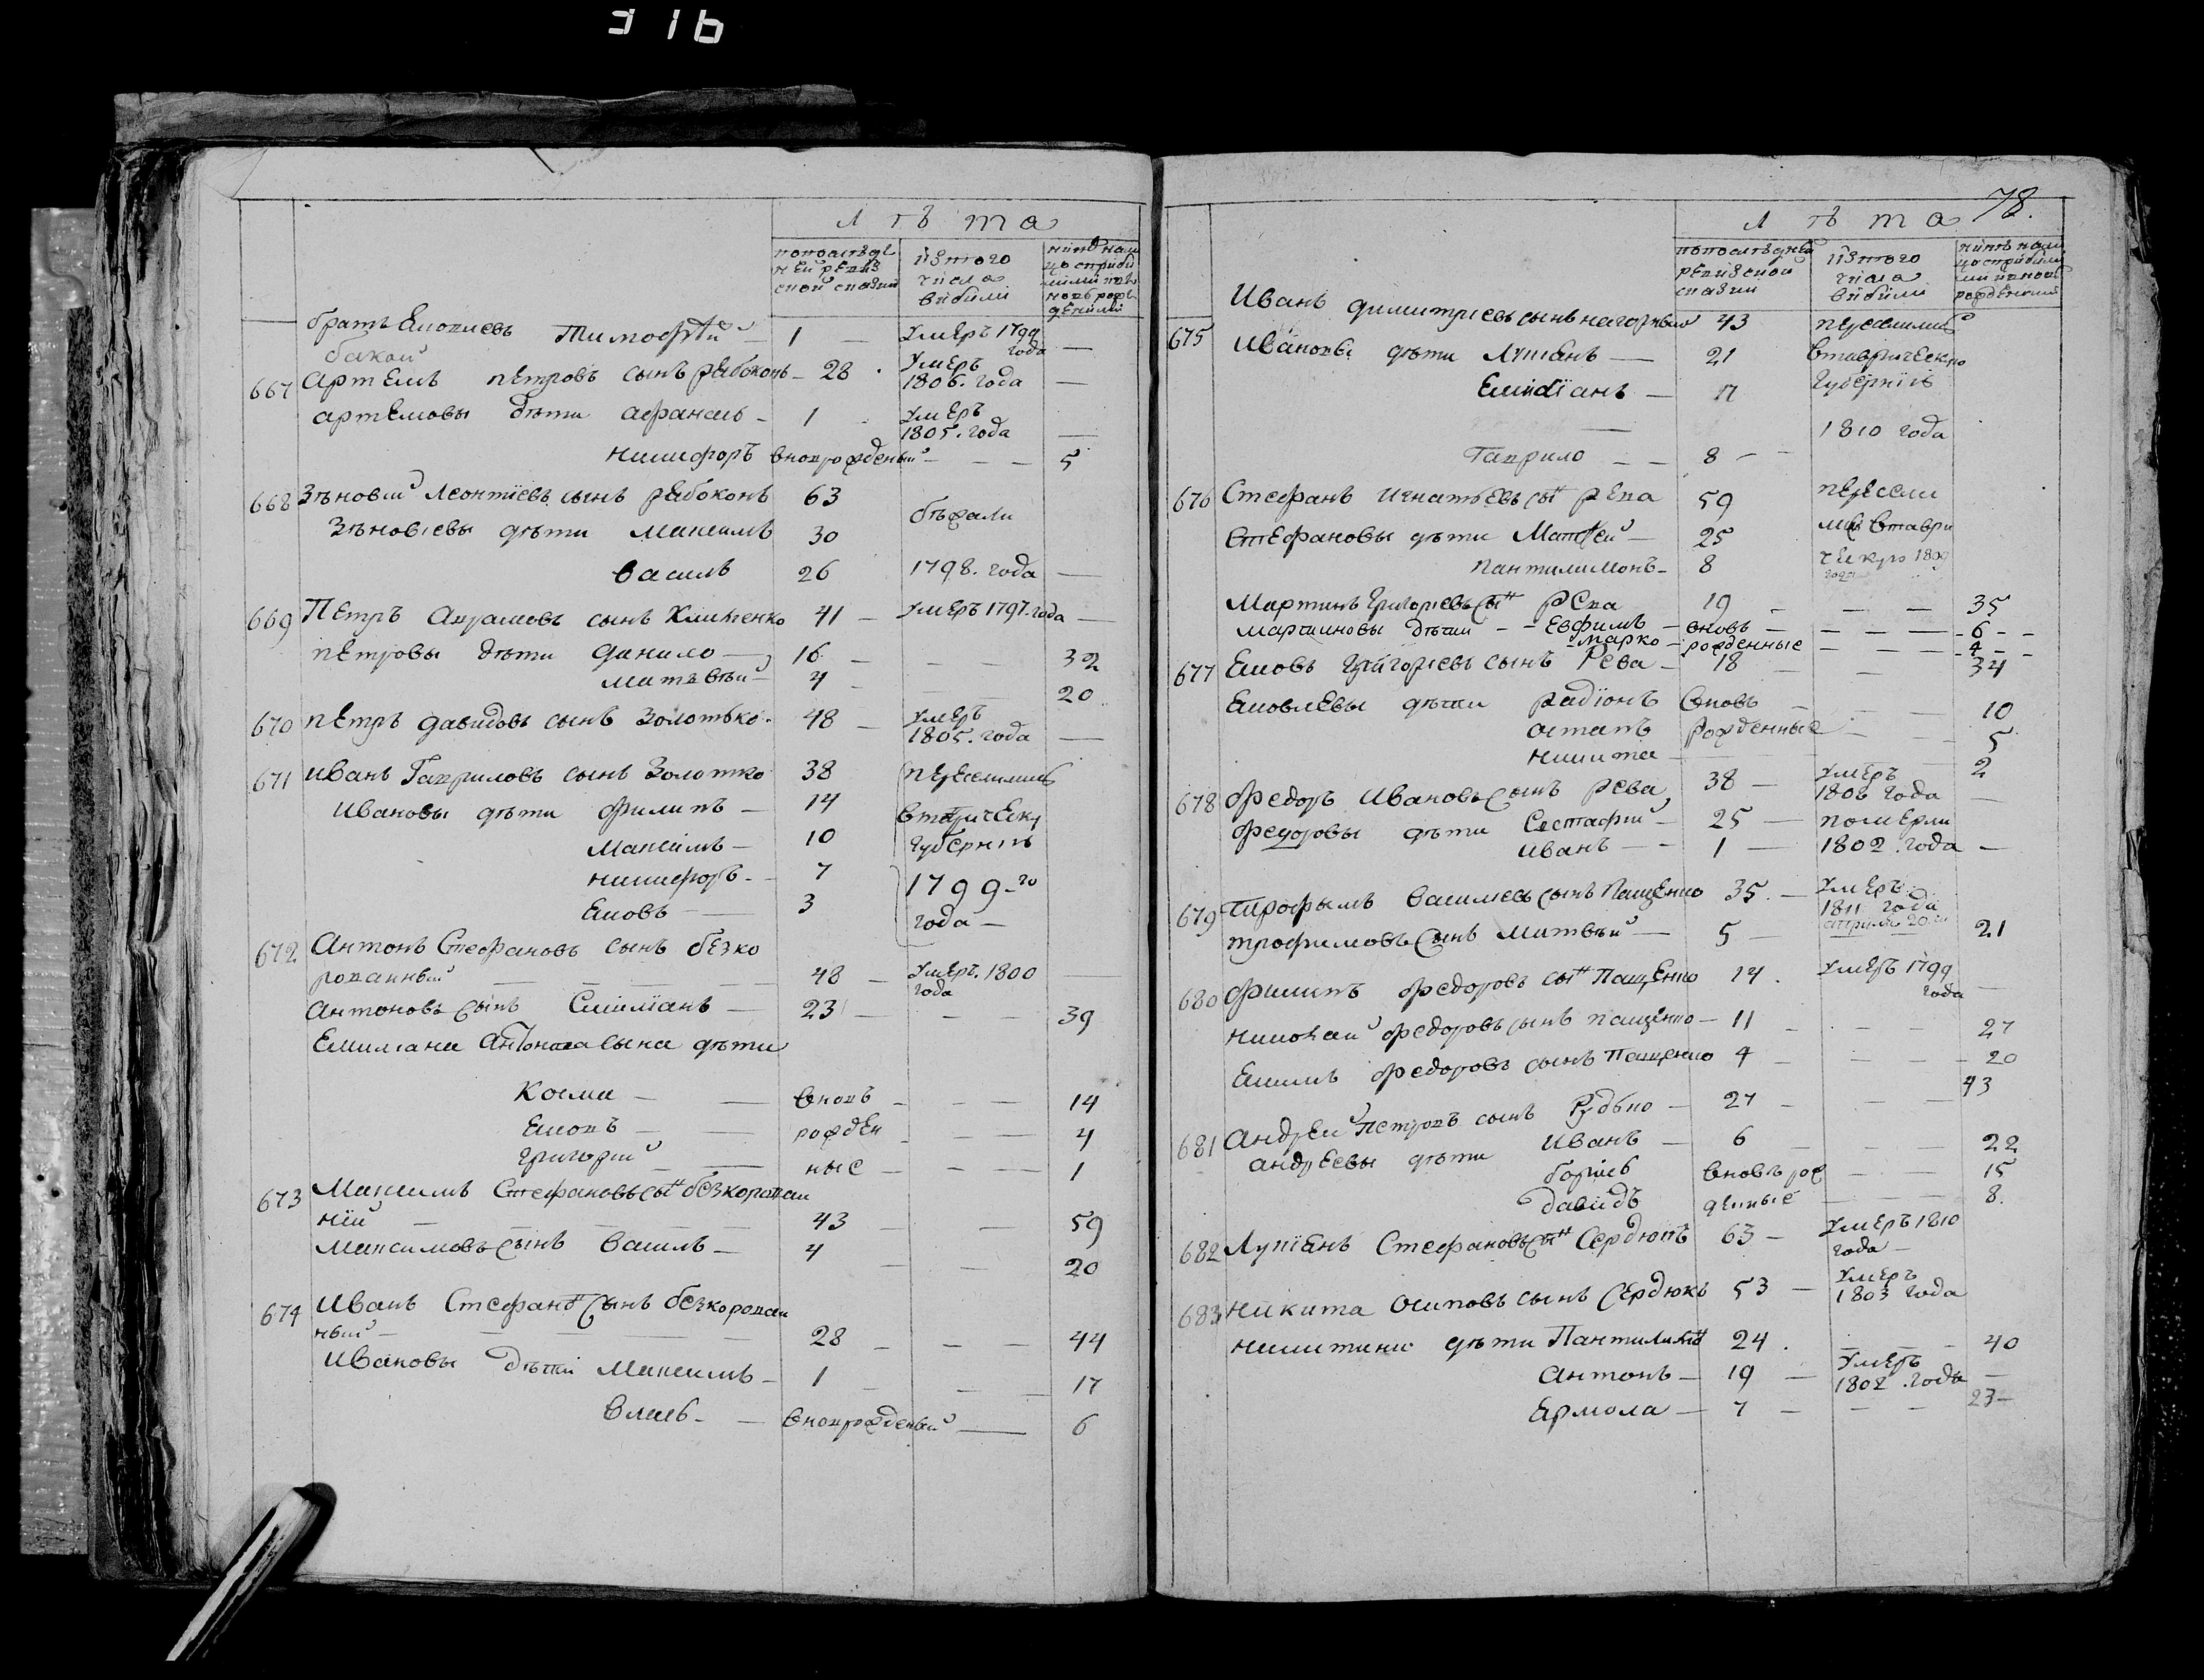 316
Лѣта
попослѣдней ревизской сказки
изтого числа выбыли
братъ Тимофѣй — 1 — умеръ 1799 года —
667 Артемъ петровъ сынъ рябоконь — 28 . умеръ 1806. года —
артемовы дѣти афанась — 1 умеръ 1805. года —
никифоръ вноврожденый — — — 5
668 Зѣновій Леонтіевъ сынъ рябоконь 63 бѣжали
Зѣновіевы дѣти Максимъ 30
василь 26 1798. года —
669 Петръ Аврамовъ сынъ Клименко 41 — умеръ 1797. года —
петровы дѣти данило — 16 — — — 32
матвѣй — 4 — 20
670 петръ давидовъ сынъ золотько . 48 — умеръ 1805. года —
671 иванъ Гавриловъ сынъ Золотко 38 переселились
Ивановы дѣти филипъ — 14
Максимъ — 10 губернію
никифоръ — 7 1799-го
Яковъ — 3 года —
672 Антонъ Стефановъ сынъ безко
рованный — 48 — умеръ. 1800 года —
Антоновъ сынъ Емиліанъ — 23 — — — 39
Емилиана Антонова сына дѣти
Косма — — вновъ — — — 14
Яковъ — рожден — — — 4
Григорій — — ные — — — 1
673 Максимъ Стефановъ сынъ безкорован
ній — — 43 — — 59
Максимовъ сынъ Василь — 4 — — 20
674 Иванъ Стефановъ сынъ безкорован
ный — — 28 — — — 44
Ивановы дѣти Максимъ — 1 — — — 17
вноврожденый — 6
78.
Лѣта
попослѣдней ревизской сказки
изтого числа выбыли
675 Иванъ димитриевъ сынъ нагорный 43 переселились
Ивановы дѣти Лукянъ — 21 втаврическую
Емиліанъ — 17 губернію
— 1810 года
Гаврило — — 8 — —
676 Стефанъ игнатьевъ сынъ рева 59 пересели
Стефановы дѣти Матвей — 25 лись втаври
Пантилимонъ — 8
Мартинъ Григориевъ сынъ рева 19 — — — 35
мартиновы дѣти — — Евфимъ — вновь — — — — 6 — —
марко — рожденные — — — 4 — —
677 Яковъ григориевъ сынъ Рева — 18 — — 34
Яковлевы дѣти радіонъ вновь — — — 10
остапъ рожденные — — 5
никита — — 2
678 федоръ Ивановъ сынъ рева 38 — умеръ 1806 года —
федоровы дѣти Евстафій — 25 — померли
иванъ — — 1 — 1802. года —
679 трофымъ василиевъ сынъ Пащенко 35. — умеръ 1811 года апрѣля 20
трофимовъ сынъ матвѣй — 5 — 21
680 филипъ федоровъ сынъ пащенко 14 . умеръ 1799 года —
николай федоровъ сынъ пащенко — 11 — — — 27
Якимъ федоровъ сынъ Пащенко 4 — — — 20
681 Андрей петровъ сынъ Рудько — 27 — — — 43
андреевы дѣти Иванъ — 6 — — 22
борисъ вновь рож — — 15
давидъ денные — — 8.
682 Лукіянъ Стефановъ сынъ Сердюкъ 63 — умеръ 1810 года —
683 Никита осиповъ сынъ Сердюкъ 53 — умеръ 1803 года
никитины дѣти Пантилимонъ 24 . — — — 40
антонъ — 19 — умеръ 1802. года —
Ярмола — 7 — — — 23 —